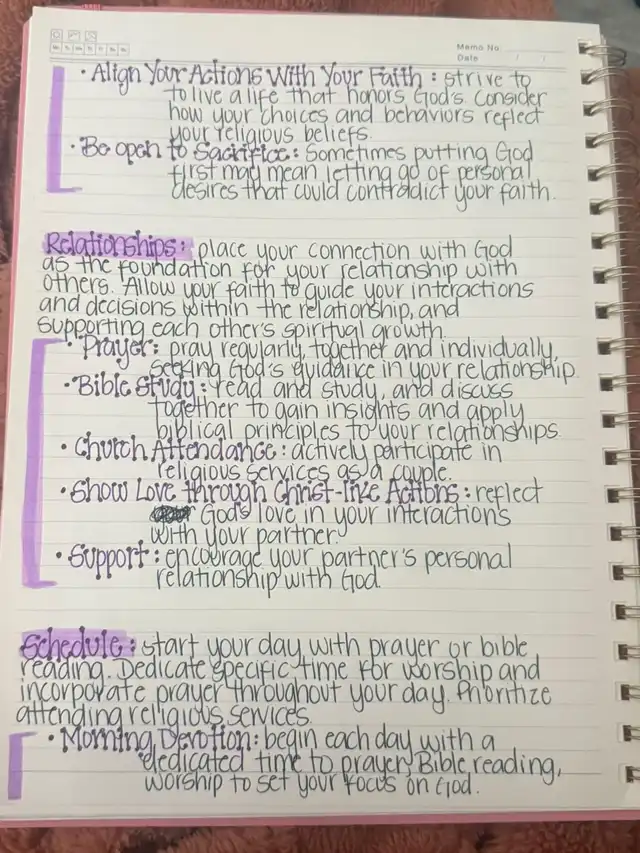 Memo No.
Date / /
• Align Your Actions With Your Faith : strive to
to live a life that honors God's. Consider
how your choices and behaviors reflect
your religious beliefs.
• Be open to Sacrifice: Sometimes putting God
first may mean letting go of personal
desires that could contradict your faith.
Relationships: place your connection with God
as the foundation for your relationship with
others. Allow your faith to guide your interactions
and decisions within the relationship, and
supporting each other's spiritual growth.
• Prayer: pray regularly, together and individually,
seeking God's guidance in your relationship.
• Bible Study: read and study, and discuss
together to gain insights and apply
biblical principles to your relationships.
• Church Attendance: actively participate in
religious services as a couple.
• Show Love through Christ-like Actions: reflect
God's love in your interactions
with your partner.
• Support: encourage your partner's personal
relationship with God.
Schedule: start your day with prayer or bible
reading. Dedicate specific time for worship and
incorporate prayer throughout your day. Prioritize
attending religious services.
• Morning Devotion: begin each day with a
dedicated time to prayer, Bible reading,
worship to set your focus on God.